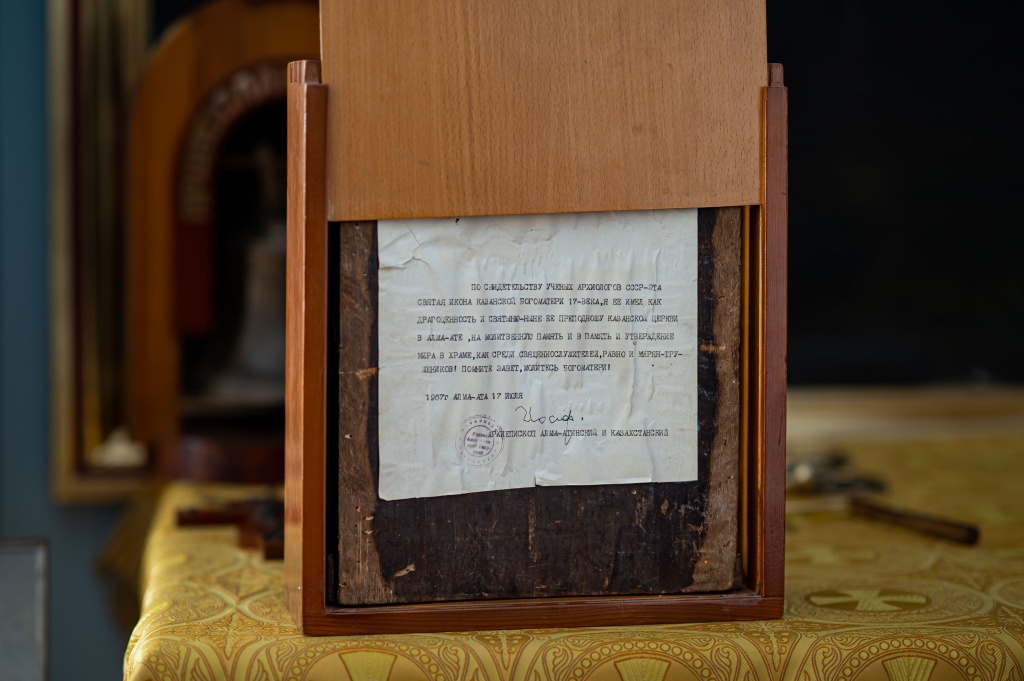 ПО СВИДЕТЕЛЬСТВУ УЧЕНЫХ АРХИОЛОГОВ СССР-ЭТА
СВЯТАЯ ИКОНА КАЗАНСКОЙ БОГОМАТЕРИ 17-ВЕКА,Я ЕЕ ИМЕЛ КАК
ДРАГОЦЕННОСТЬ И СВЯТЫНЮ-НЫНЕ ЕЕ ПРЕПОДНОШУ КАЗАНСКОЙ ЦЕРКВИ
В АЛМА-АТЕ ,НА МОЛИТВЕННУЮ ПАМЯТЬ И В ПАМЯТЬ И УТВЕРЖДЕНИЕ
МИРА В ХРАМЕ,КАК СРЕДИ СВЯЩЕННОСЛУЖИТЕЛЕЙ,РАВНО И МИРЯН-ТРУ-
ЖЕНИКОВ! ПОМНИТЕ ЗАВЕТ,МОЛИТЕСЬ БОГОМАТЕРИ!
1967г АЛМА-АТА 17 ИЮЛЯ
Иосиф.
АРХИЕПИСКОП АЛМА-АТИНСКИЙ И КАЗАХСТАНСКИЙ